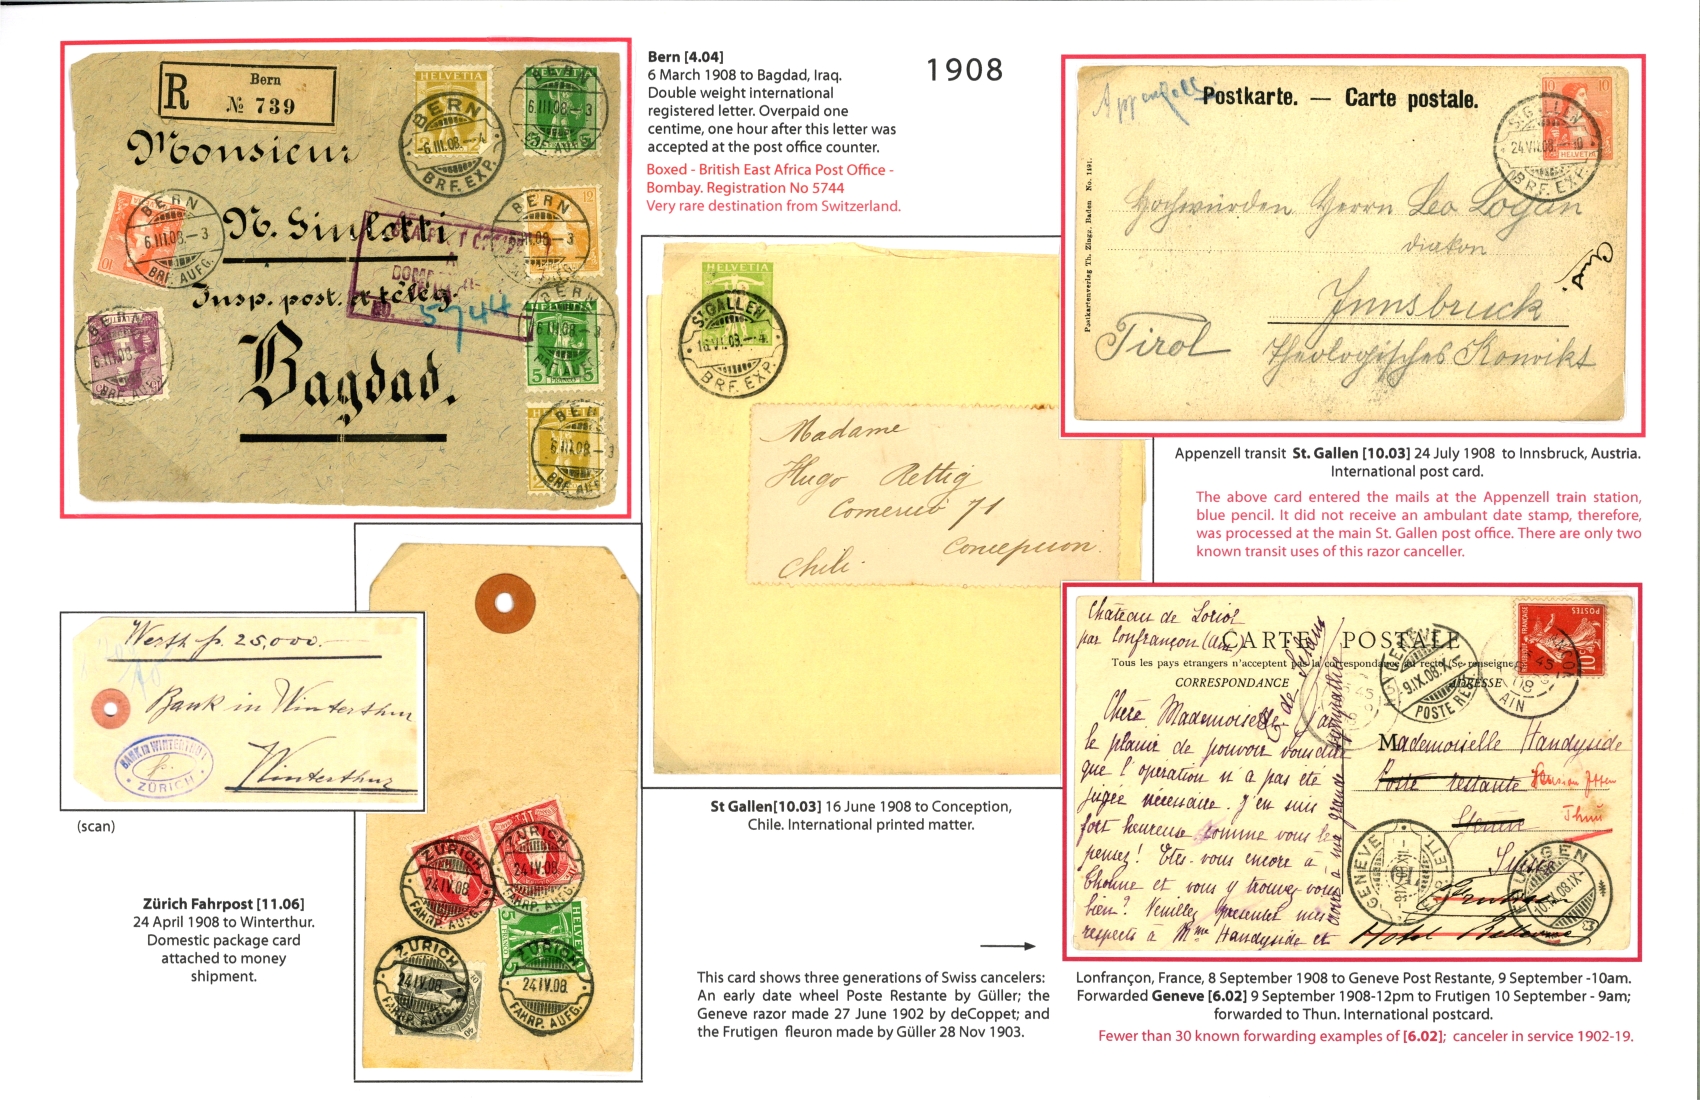 1908
R
Bern
№ 739
Monsieur
N. Sinlotti
Insp. post. et télég.
Bagdad.
5744
HELVETIA
BERN
6.III.08.–4
BRF. EXP.
BERN
6.III.08.–3
BRF. AUFG.
BERN
6.III.08.–3
BRF. AUFG.
BERN
6.III.08.–3
BRF. AUFG.
Bern [4.04]
6 March 1908 to Bagdad, Iraq.
Double weight international
registered letter. Overpaid one
centime, one hour after this letter was
accepted at the post office counter.
Boxed - British East Africa Post Office -
Bombay. Registration No 5744
Very rare destination from Switzerland.
Appenzell
Postkarte. — Carte postale.
ST. GALLEN
24.VII.08.–10
BRF. EXP.
HELVETIA
Postkartenverlag Th. Zingg, Baden No. 1191.
Hochwürden Herrn Leo Logan
diakon
Innsbruck
Tirol
Theologisches Konvikt
Appenzell transit St. Gallen [10.03] 24 July 1908 to Innsbruck, Austria.
International post card.
The above card entered the mails at the Appenzell train station,
blue pencil. It did not receive an ambulant date stamp, therefore,
was processed at the main St. Gallen post office. There are only two
known transit uses of this razor canceller.
HELVETIA
ST. GALLEN
16.VI.08.–4
BRF. EXP.
Madame
Hugo Rettig
Comercio 71
Concepcion.
Chile.
St Gallen[10.03] 16 June 1908 to Conception,
Chile. International printed matter.
Werth fr. 25,000.
Bank in Winterthur
Winterthur
BANK IN WINTERTHUR
ZÜRICH
(scan)
ZÜRICH
24.IV.08.
FAHRP. AUFG.
ZÜRICH
24.IV.08.
FAHRP. AUFG.
HELVETIA
ZÜRICH
24.IV.08.
FAHRP. AUFG.
ZÜRICH
24.IV.08.
FAHRP. AUFG.
Zürich Fahrpost [11.06]
24 April 1908 to Winterthur.
Domestic package card
attached to money
shipment.
Château de Loriol
par Confrançon (Ain)
CARTE POSTALE
Tous les pays étrangers n'acceptent pas la correspondance au recto (Se renseigner
CORRESPONDANCE
ADRESSE
POSTES
10
GENÈVE
–9.IX.08.X–
POSTE REST.
AIN
Chère Mademoiselle
le plaisir de pouvoir vous dire
que l'opération n'a pas été
jugée nécessaire. J'en suis
fort heureuse comme vous le
pensez! Etes-vous encore à
Lhonne et vous y trouvez-vous
bien? Veuillez présenter mes
respects à Mme Handyside et
Mademoiselle Handyside
Poste restante
Thun
Suisse
Hotel Bellevue
GENÈVE
FRUTIGEN
10.IX.08.IX–
This card shows three generations of Swiss cancelers:
An early date wheel Poste Restante by Güller; the
Geneve razor made 27 June 1902 by deCoppet; and
the Frutigen fleuron made by Güller 28 Nov 1903.
Lonfrançon, France, 8 September 1908 to Geneve Post Restante, 9 September -10am.
Forwarded Geneve [6.02] 9 September 1908-12pm to Frutigen 10 September - 9am;
forwarded to Thun. International postcard.
Fewer than 30 known forwarding examples of [6.02]; canceler in service 1902-19.